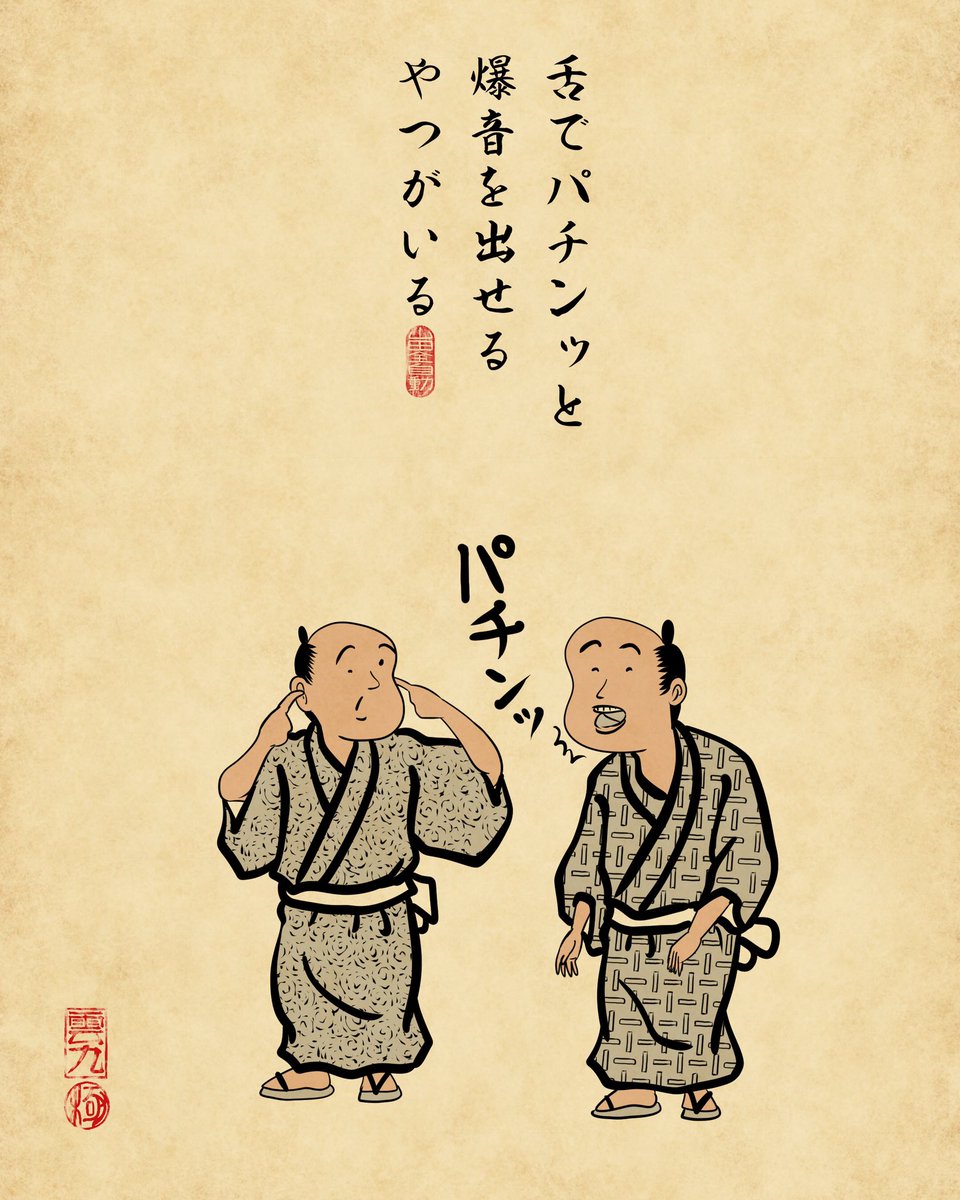 舌でパチンッと
爆音を出せる
やつがいる
パチンッ